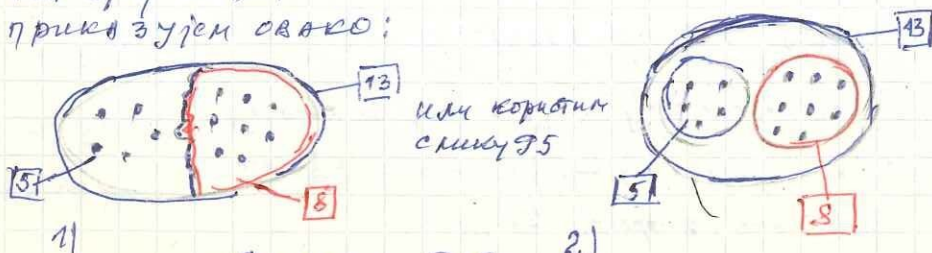 приказујем овако:
13
13
или користим
слику 95
5
8
5
8
1)
2.)